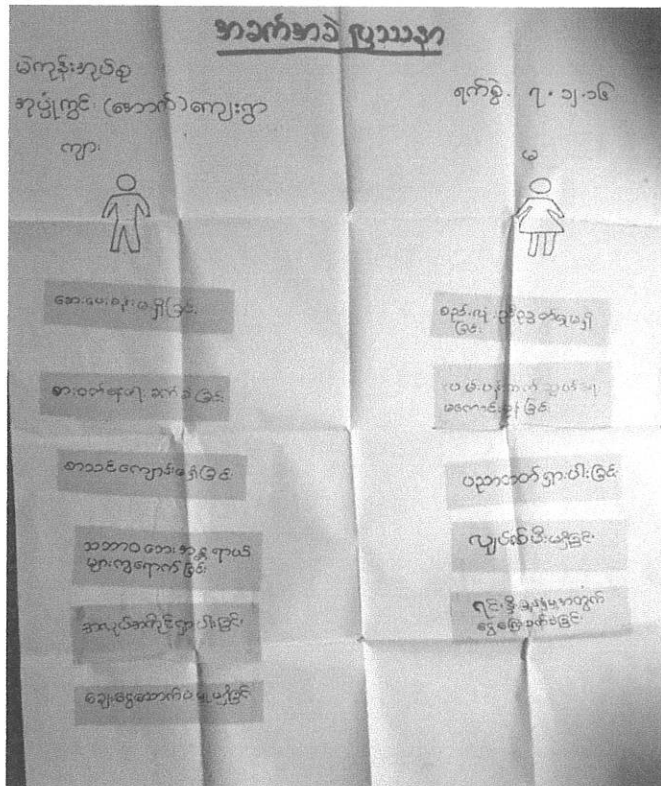 အခက်အခဲ ပြဿနာ
မဲကုန်းအုပ်စု
အုပ်ပုံကွင်း (အောက်) ကျေးရွာ
ရက်စွဲ - ၇.၁၂.၁၆
ကျား
မ
ဆေးပေးခန်းမရှိခြင်း
စားဝတ်နေရေးခက်ခဲခြင်း
စာသင်ကျောင်းမရှိခြင်း
သဘာဝဘေးအန္တရာယ်
များကျရောက်ခြင်း
အလုပ်အကိုင်ရှားပါးခြင်း
ချေးငွေထောက်ပံ့မှုမရှိခြင်း
စည်းလုံးညီညွတ်မှုမရှိ
ခြင်း
လမ်းပန်းဆက်သွယ်ရေး
မကောင်းမွန်ခြင်း
ပညာတတ်ရှားပါးခြင်း
လျှပ်စစ်မီးမရှိခြင်း
ရင်းနှီးမြှုပ်နှံမှုအတွက်
ငွေကြေးခက်ခဲခြင်း